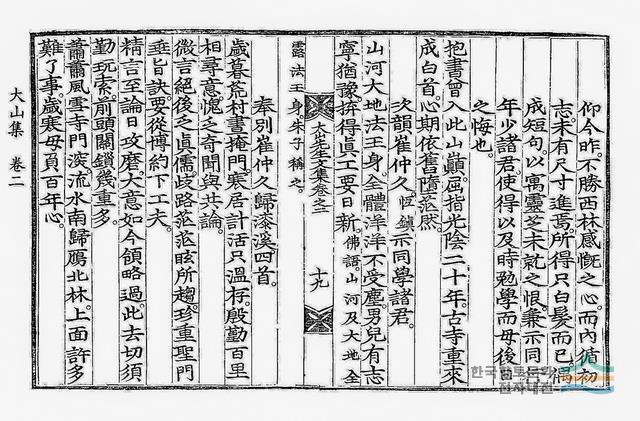 仰今昨。不勝西林感慨之心。而內循初
志未有尺寸進焉。所得只白髮而已。偶
成短句。以寓靈芝未就之恨。兼示同
年少諸君。使得以及時勉學而毋後
之悔也。
抱書曾入此山巓。屈指光陰二十年。古寺重來
成白首。心期依舊墮茫然。
次韻崔仲久 恒鎭 示同學諸君。
山河大地法王身。全體洋洋不受塵。男兒有志
寧猶豫。拚得眞工要日新。佛語。山河及大地。全
露法王身。朱子稱之。
大山先生文集卷之二
十九
奉別崔仲久歸漆溪四首。
歲暮荒村晝掩門。寒居計活只溫存。殷勤百里
相尋意。愧乏奇聞與共論。
微言絕後乏眞儒。歧路茫茫眩所趨。珍重聖門
垂旨訣。要從博約下工夫。
精言至論日攻磨。大意如今領略過。此去切須
勤玩索。前頭關鎖幾重多。
蕭蕭風雪寺門深。流水南歸鴈北林。上面許多
難了事。歲寒毋負百年心。
大山集 卷二
한국향토문화
전자대전